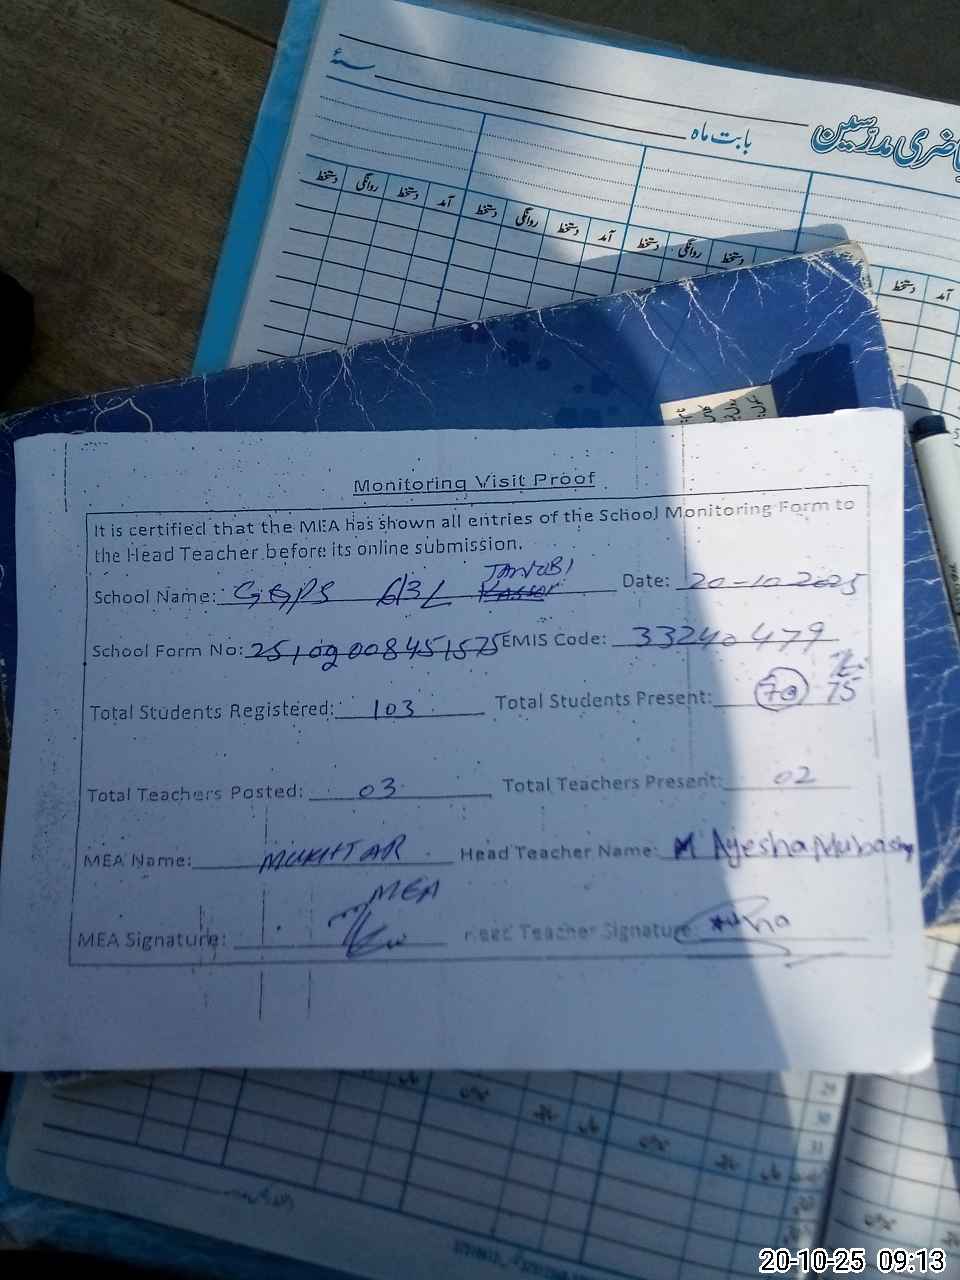 سنۂ
بابت ماہ
حاضری مدرسین
دستخط روانگی دستخط آمد دستخط روانگی دستخط آمد دستخط روانگی دستخط
دستخط آمد
Monitoring Visit Proof
It is certified that the MEA has shown all entries of the School Monitoring Form to
the Head Teacher before its online submission.
JANUBI
School Name: GGPS 6/3L Date: 20-10-2025
School Form No: EMIS Code: 33240479
Total Students Registered: 103 Total Students Present: 70 75
Total Teachers Posted: 03 Total Teachers Present: 02
MEA Name: MUKHTAR Head Teacher Name: M Ayesha Mubashar
MEA
MEA Signature: Head Teacher Signature:
29
30
31
20-10-25 09:13